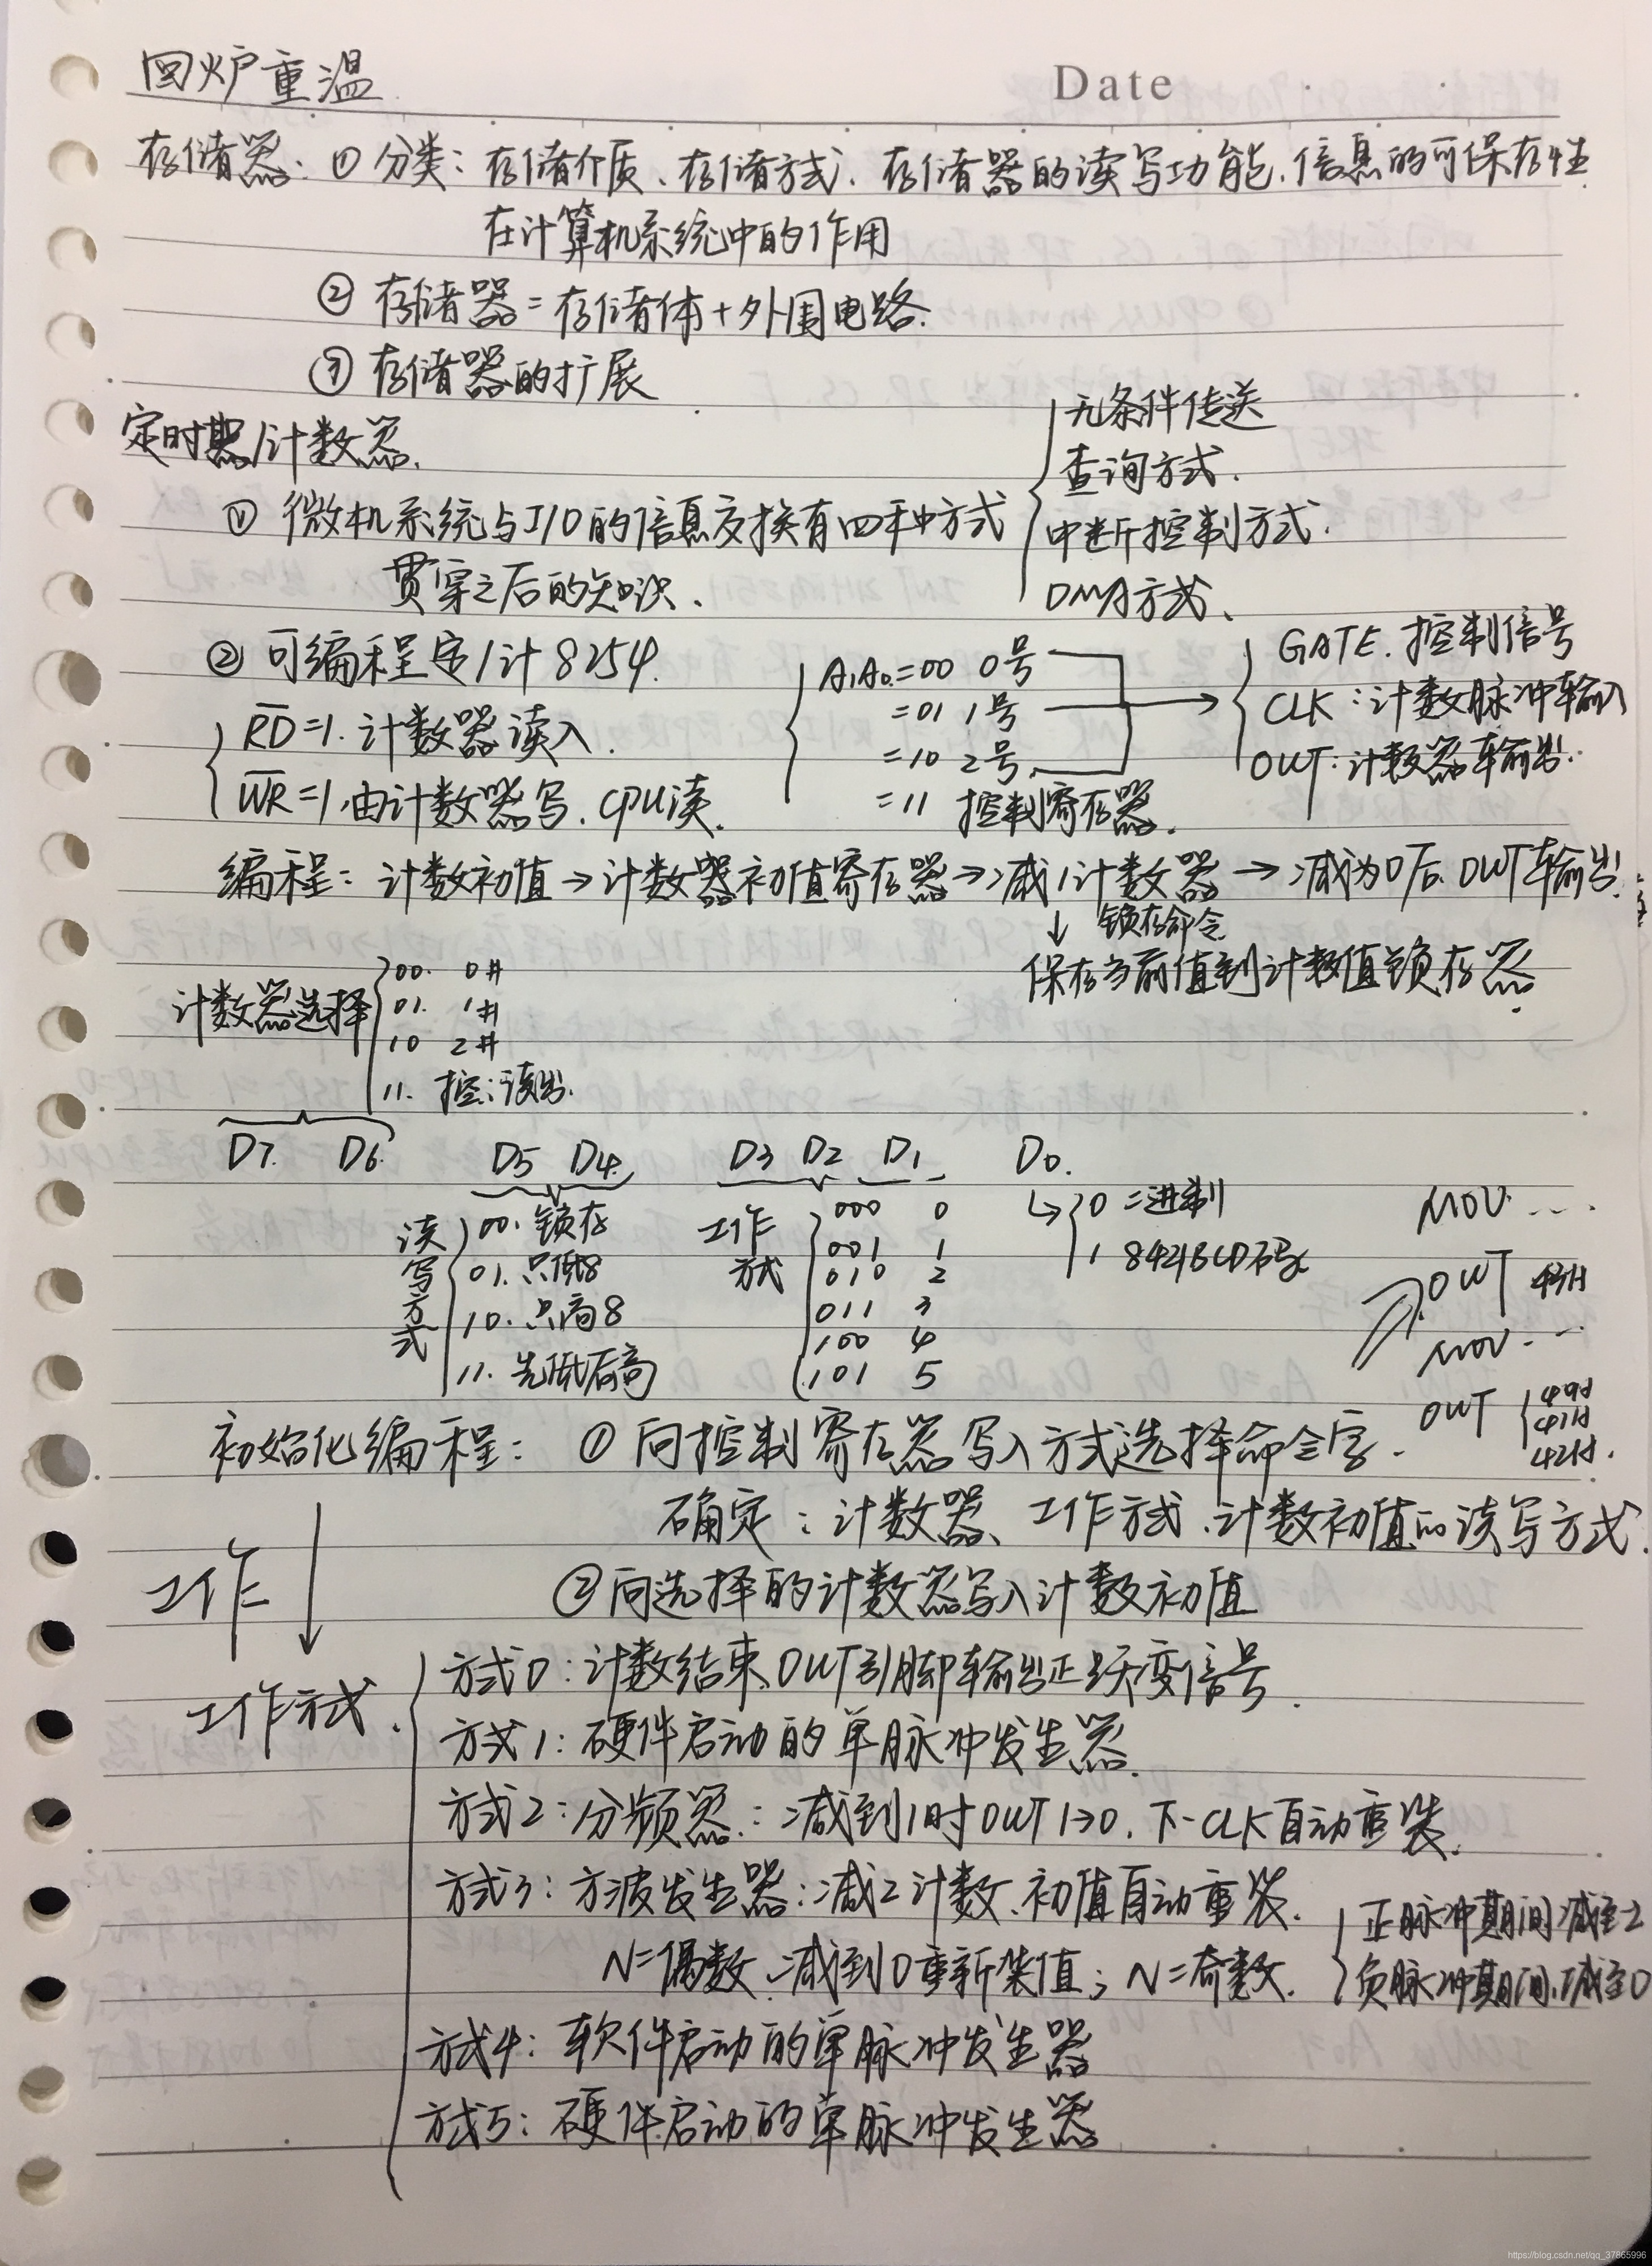 回炉重温
Date
存储器: ① 分类: 存储介质、存储方式、存储器的读写功能、信息的可保存性
在计算机系统中的作用
② 存储器=存储体+外围电路.
③ 存储器的扩展
定时器/计数器.
① 微机系统与I/O的信息交换有四种方式
无条件传送
查询方式.
中断控制方式.
DMA方式、
贯穿之后的知识、
② 可编程定/计 8254.
RD=1. 计数器读入.
WR=1, 由计数器写. CPU读.
A1A0=00 0号
=01 1号
=10 2号
=11 控制寄存器.
GATE. 控制信号
CLK: 计数脉冲输入
OUT: 计数器输出.
编程: 计数初值→计数器初值寄存器→减1计数器→减为0后OUT输出.
↓ 锁存命令
保存当前值到计数值锁存器.
计数器选择
00. 0#
01. 1#
10 2#
11. 控: 读出.
D7. D6 D5 D4. D3 D2 D1 D0.
读写方式
00. 锁存
01. 只低8
10. 只高8
11. 先低后高
工作方式
000 0
001 1
010 2
011 3
100 4
101 5
↳ 0 二进制
1 8421BCD码
MOV. ...
OUT 43H
MOV. ...
OUT 40H
41H
42H.
初始化编程: ① 向控制寄存器写入方式选择命令字.
确定: 计数器、工作方式、计数初值的读写方式.
② 向选择的计数器写入计数初值
工作
工作方式.
方式0: 计数结束, OUT引脚输出正跃变信号.
方式1: 硬件启动的单脉冲发生器.
方式2: 分频器: 减到1时OUT 1→0, 下一CLK自动重装.
方式3: 方波发生器: 减2计数、初值自动重装.
N=偶数、减到0重新装值; N=奇数.
正脉冲期间减至2
负脉冲期间, 减至0
方式4: 软件启动的单脉冲发生器
方式5: 硬件启动的单脉冲发生器
https://blog.csdn.net/qq_37865996